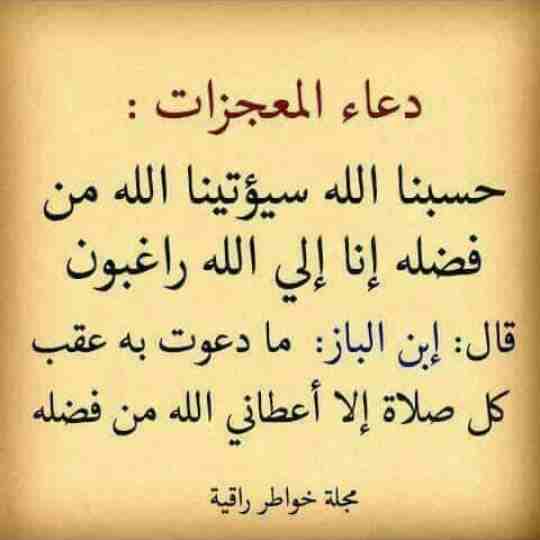 دعاء المعجزات :
حسبنا الله سيؤتينا الله من
فضله إنا إلي الله راغبون
قال: إبن الباز: ما دعوت به عقب
كل صلاة إلا أعطاني الله من فضله
مجلة خواطر راقية